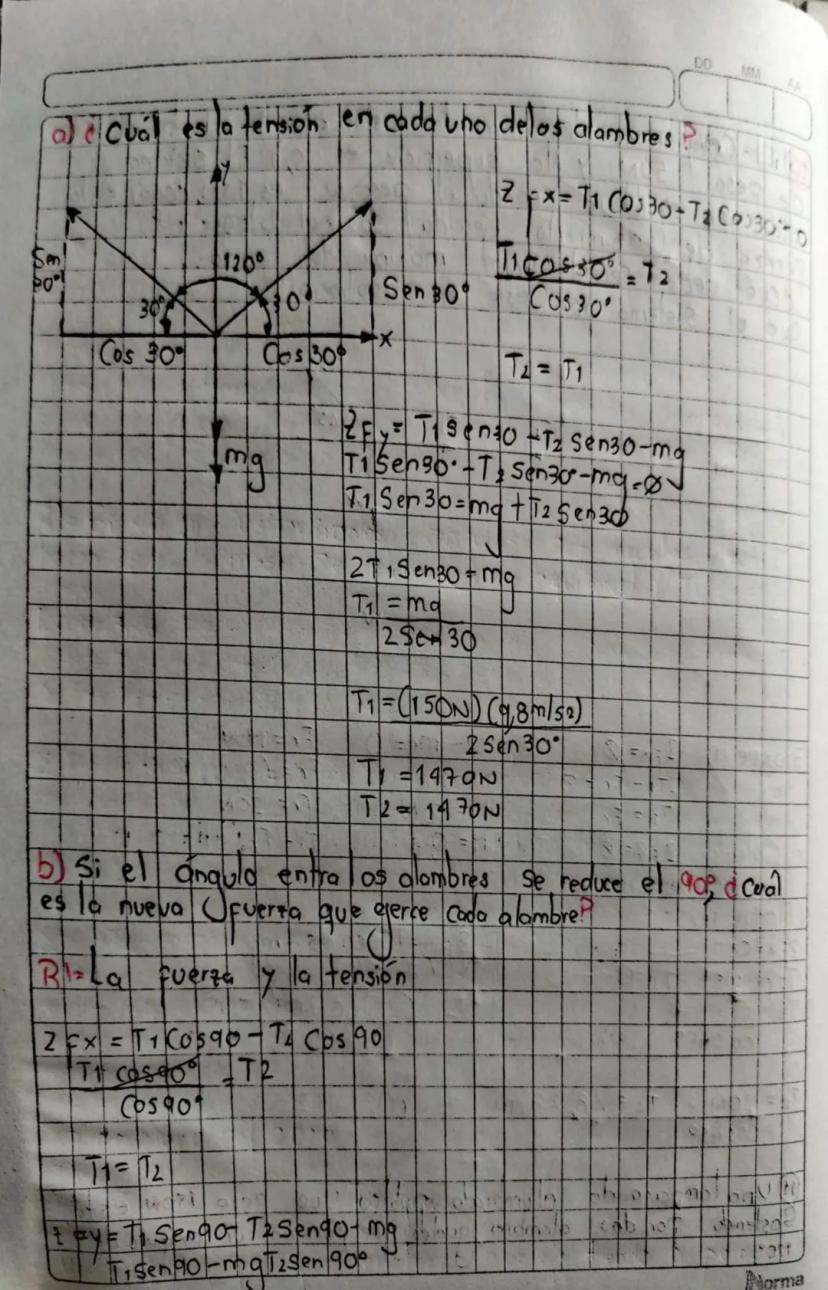 DD MM AA
a) ¿Cuál es la tensión en cada uno de los alambres?
y
Z Fx = T1 Cos30 - T2 Cos30 = 0
120°
Sen 30°
30°
30°
Sen 30°
T1 cos30° = T2
Cos30°
x
Cos 30°
Cos 30°
T2 = T1
mg
ZFy = T1 Sen30 + T2 Sen30 - mg
T1 Sen30° + T2 Sen30° - mg = 0
T1 Sen30 = mg + T2 Sen30
2T1 Sen30 = mg
T1 = mg
2Sen 30
T1 = (150N) (9,8m/s2)
2Sen30°
T1 = 1470N
T2 = 1470N
b) Si el ángulo entra los alambres se reduce el 90°, ¿cuál
es la nueva fuerza que ejerce cada alambre?
R1= La fuerza y la tensión
Z Fx = T1 Cos90 - T2 Cos 90
T1 cos90° = T2
Cos90°
T1 = T2
Z Fy = T1 Sen90 - T2 Sen90 - mg
T1 Sen90 - mg T2 Sen 90°
Norma